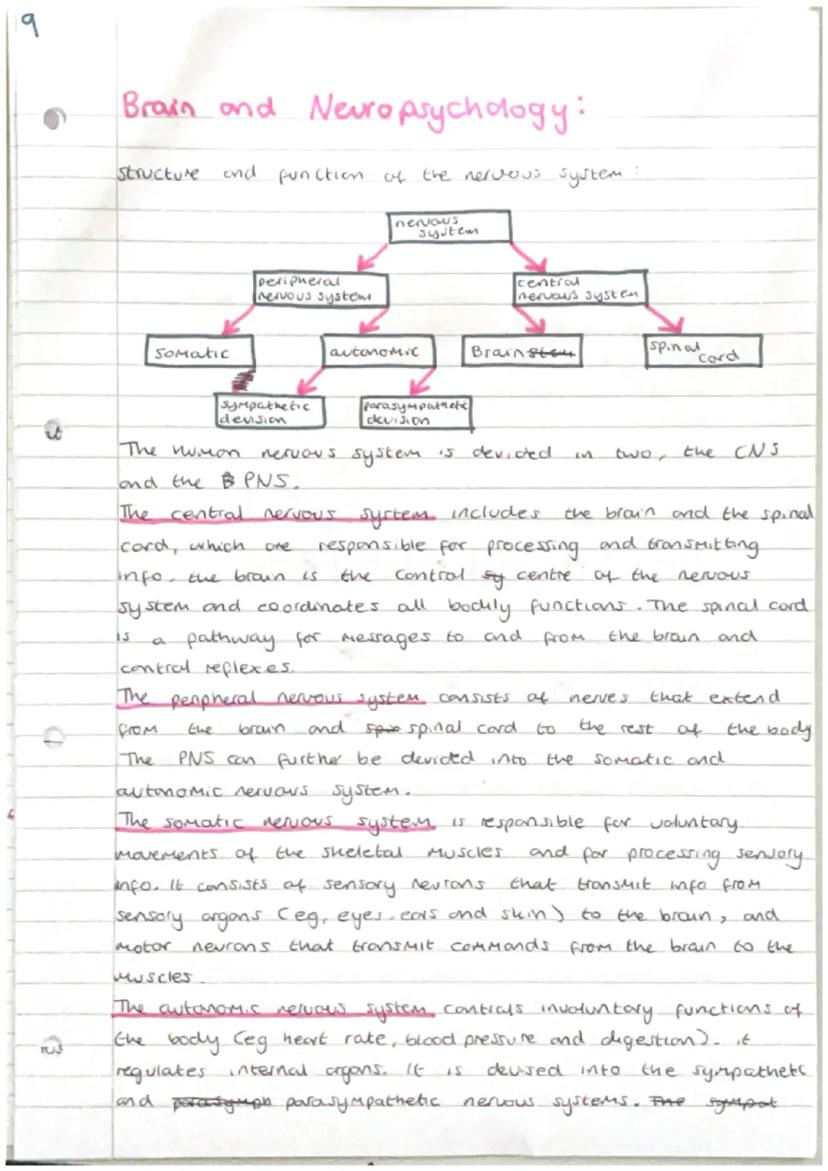 9
Brain and Neuropsychology:
structure and function of the nervous system:
nervous
system
peripheral
nervous system
central
nervous system
somatic
autonomic
Brain stem
spinal
cord
sympathetic
devision
parasympathetic
devision
The human nervous system is devided in two, the CNS
and the B PNS.
The central nervous system includes the brain and the spinal
cord, which are responsible for processing and transmitting
info. the brain is the control sy centre of the nervous
system and coordinates all bodily functions. The spinal cord
is a pathway for messages to and from the brain and
control reflexes.
The peripheral nervous system consists of nerves that extend
from the brain and spin spinal cord to the rest of the body
The PNS can further be devided into the somatic and
autonomic nervous system.
The somatic nervous system is responsible for voluntary
movements of the skeletal muscles and for processing sensory
info. It consists of sensory neurons that transmit info from
sensory organs (eg, eyes. ears and skin) to the brain, and
motor neurons that transmit commands from the brain to the
muscles.
The autonomic nervous system controls involuntary functions of
the body (eg heart rate, blood pressure and digestion). it
regulates internal organs. It is devised into the sympathetic
and parasymph parasympathetic nervous systems. The sympat